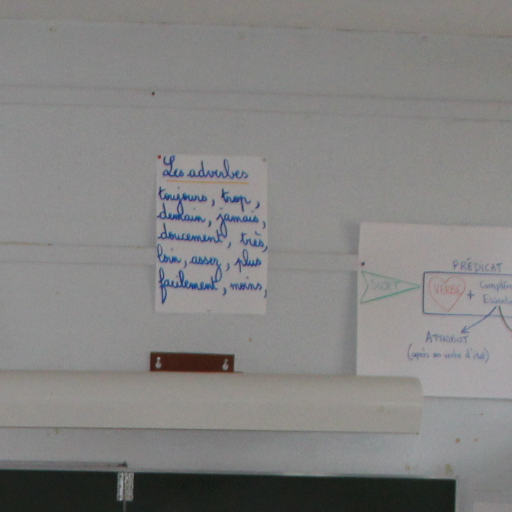 Les adverbes
toujours, trop,
demain, jamais,
doucement, très,
loin, assez, plus
facilement, moins,
PRÉDICAT
SUJET
VERBE + Complém
Essentiel
ATTRIBUT
(après un verbe d'état)